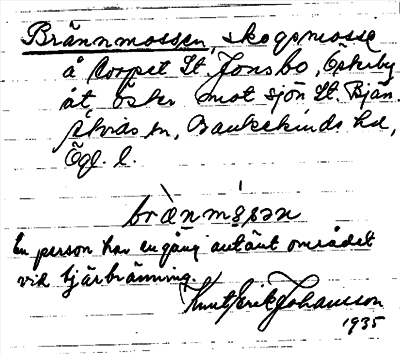 Brännmossen, skogsmosse
å torpet St. Jonsbo, Österby
åt öster mot sjön St. Bjän.
Åtvids sn, Bankekinds hd,
Ögl. l.
bræ̀nmósən
En person har en gång antänt området
vid tjärbränning.
Knut Erik Johansson
1935